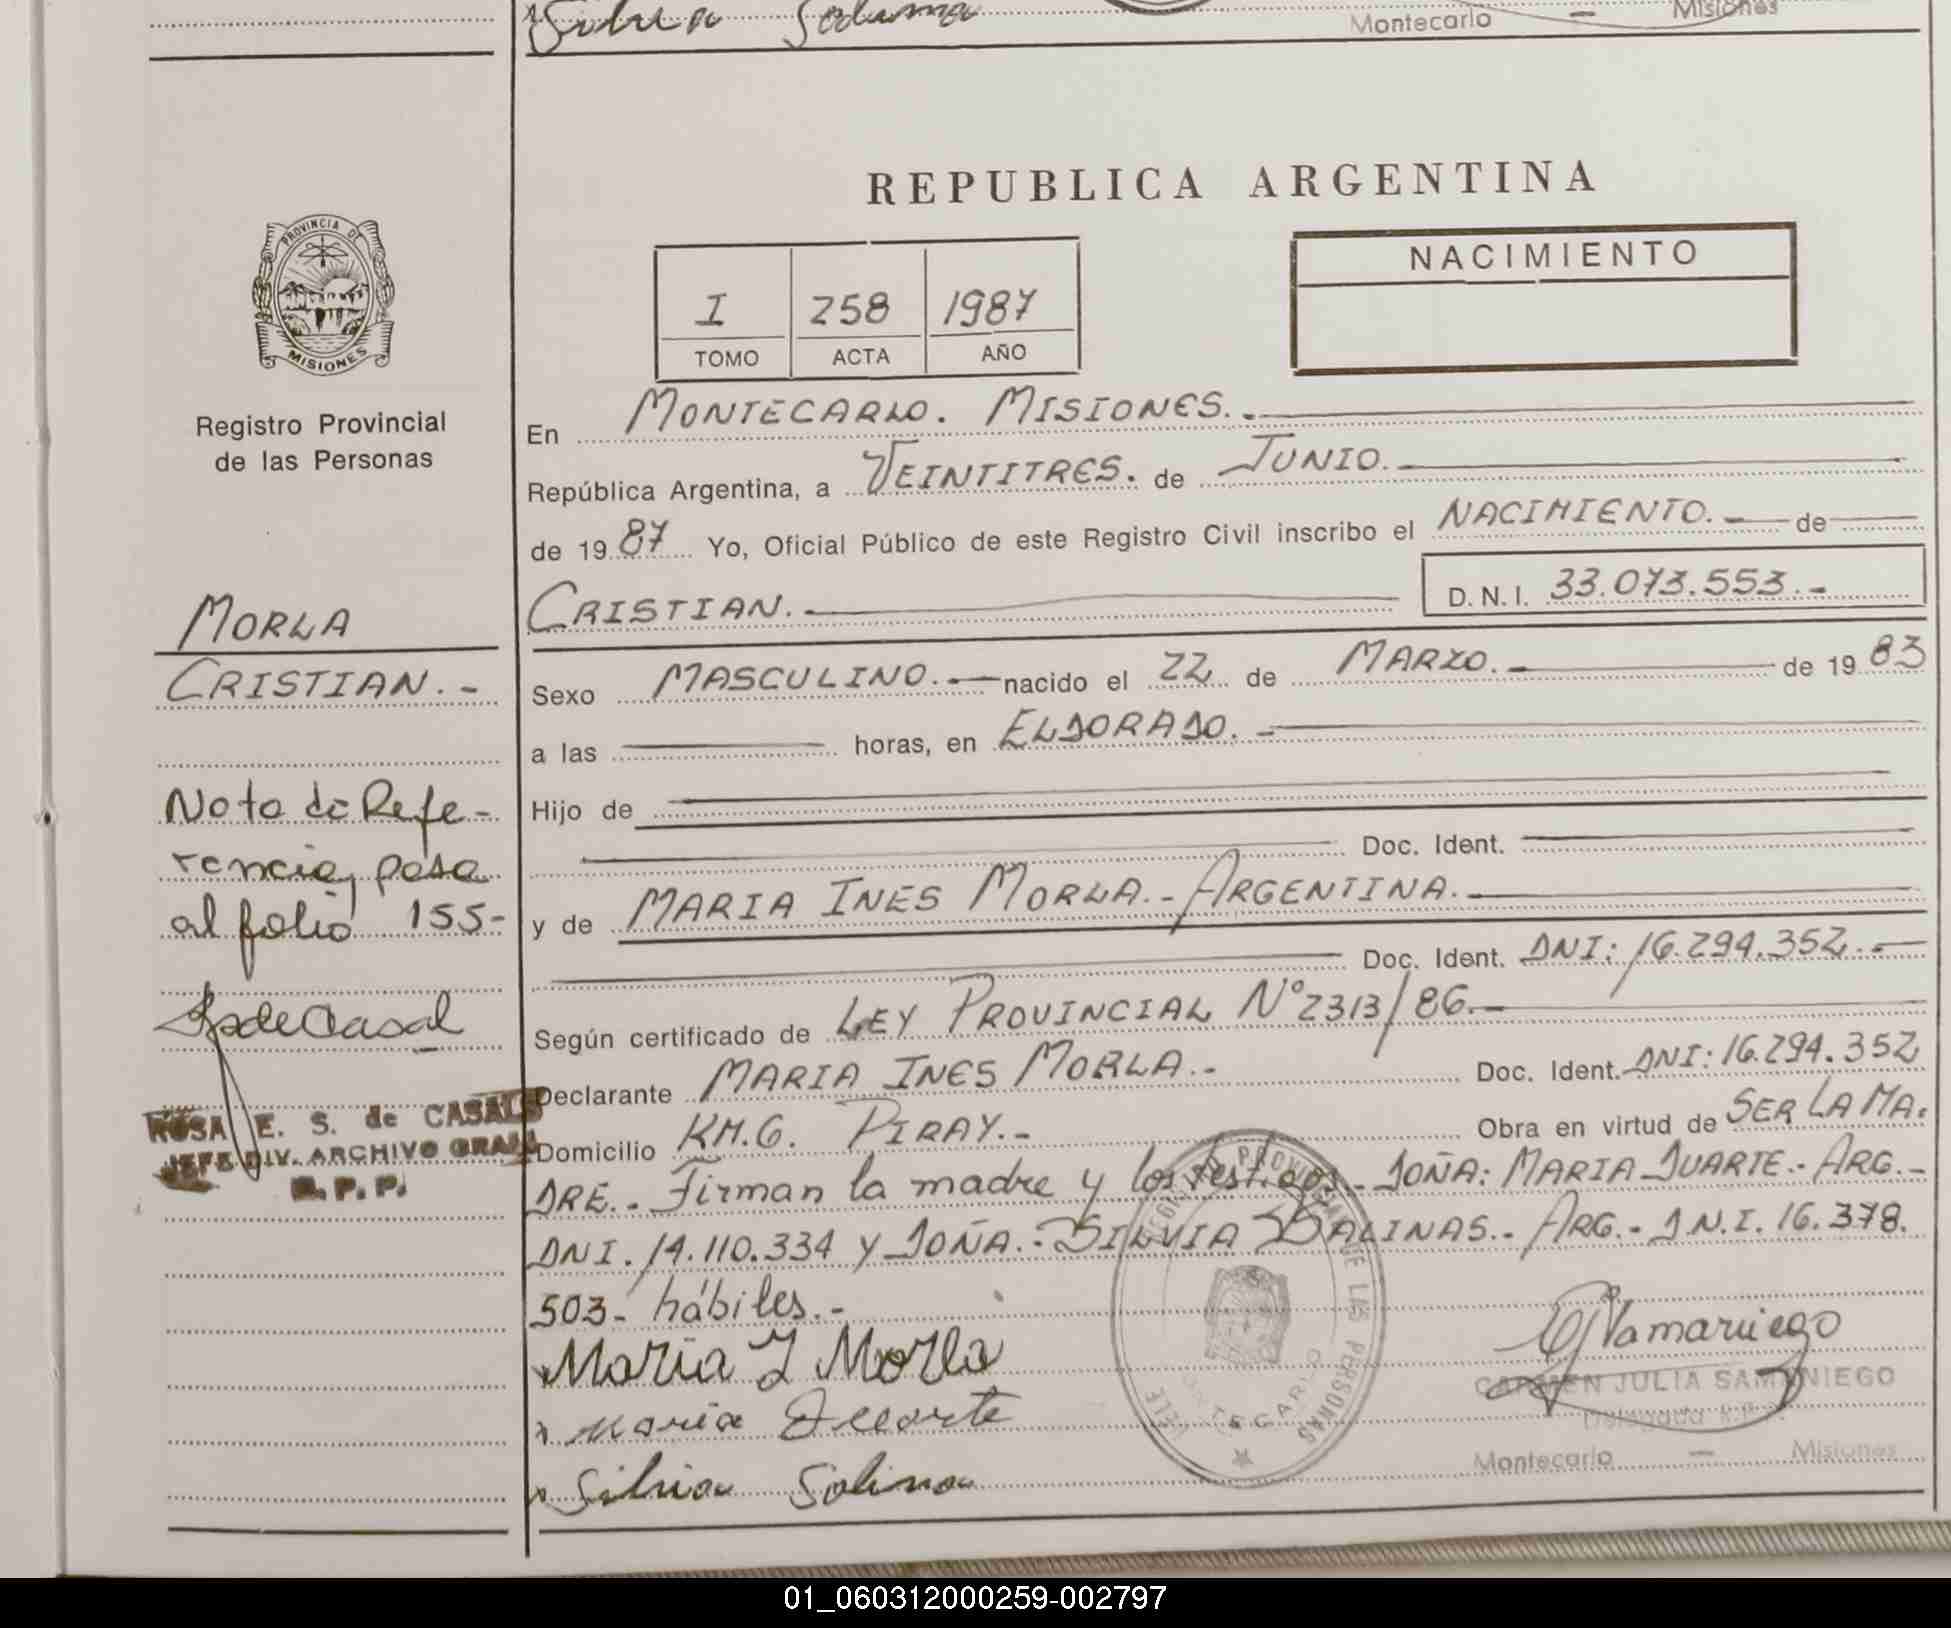 Silvia Salinas
Montecarlo — Misiones
REPUBLICA ARGENTINA
PROVINCIA DE
MISIONES
Registro Provincial
de las Personas
I 258 1987
TOMO ACTA AÑO
NACIMIENTO
En MONTECARLO. MISIONES.-
República Argentina, a VEINTITRES. de JUNIO.
de 1987 Yo, Oficial Público de este Registro Civil inscribo el NACIMIENTO.- de
CRISTIAN. D.N.I. 33.073.553.-
MORLA
CRISTIAN.-
Sexo MASCULINO.- nacido el 22 de MARZO.- de 1983
a las horas, en ELDORADO.-
Hijo de
Doc. Ident.
y de MARIA INES MORLA.- ARGENTINA.
Doc. Ident. DNI: 16.294.352.-
Según certificado de LEY PROVINCIAL Nº 2313/86.-
Declarante MARIA INES MORLA.- Doc. Ident. DNI: 16.294.352
Domicilio KM.6. PIRAY.- Obra en virtud de SER LA MA.
DRE.- Firman la madre y los testigos.- DOÑA: MARIA DUARTE.- ARG.-
DNI. 14.110.334 Y DOÑA.- SILVIA SALINAS.- ARG.- D.N.I. 16.378.
503- hábiles.-
Maria I Morla
Maria Duarte
Silvia Salinas
Nota de Refe-
rencia, pasa
al folio 155-
SdeCasal
ROSA E. S. de CASALS
JEFE DIV. ARCHIVO GRAL.
R. P. P.
REGISTRO PROVINCIAL DE LAS PERSONAS
MONTECARLO
CJSamaniego
CARMEN JULIA SAMANIEGO
Delegada R.P.
Montecarlo — Misiones
01_060312000259-002797